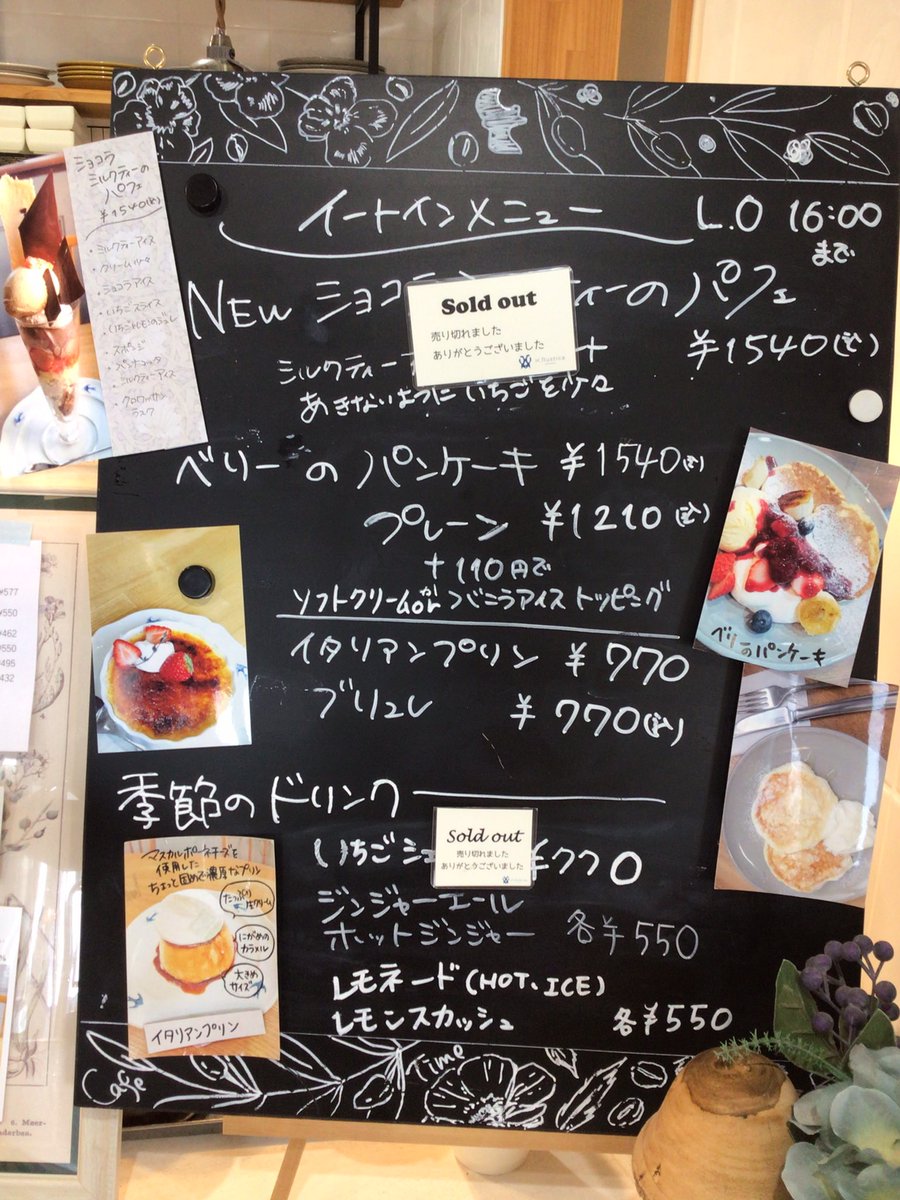 イートインメニュー
L.O 16:00
まで
NEW ショコラ
ティーのパフェ
¥1540(込)
Sold out
売り切れました
ありがとうございました
ミルクティー
+
あきないようにいちごを
ベリーのパンケーキ ¥1540(込)
プレーン ¥1210(込)
+110円で
ソフトクリームor バニラアイス トッピング
イタリアンプリン ¥770
ブリュレ ¥770(込)
季節のドリンク
いちご
¥770
Sold out
売り切れました
ありがとうございました
ジンジャーエール
ホットジンジャー 各¥550
レモネード(HOT・ICE)
レモンスカッシュ 各¥550
Cafe
Time
ショコラ
ミルクティーの
パフェ
¥1540(込)
・ミルクティーアイス
・ショコラアイス
・いちごスライス
・スポンジ
・パンナコッタ
・ミルクティーアイス
・クロワッサン
ラスク
ベリー
のパンケーキ
マスカルポーネチーズを
使用した
ちょっと固めで濃厚なプリン
たっぷり
生クリーム
にがめの
カラメル
大きめ
サイズ
イタリアンプリン
¥577
¥550
¥462
¥550
¥495
¥432